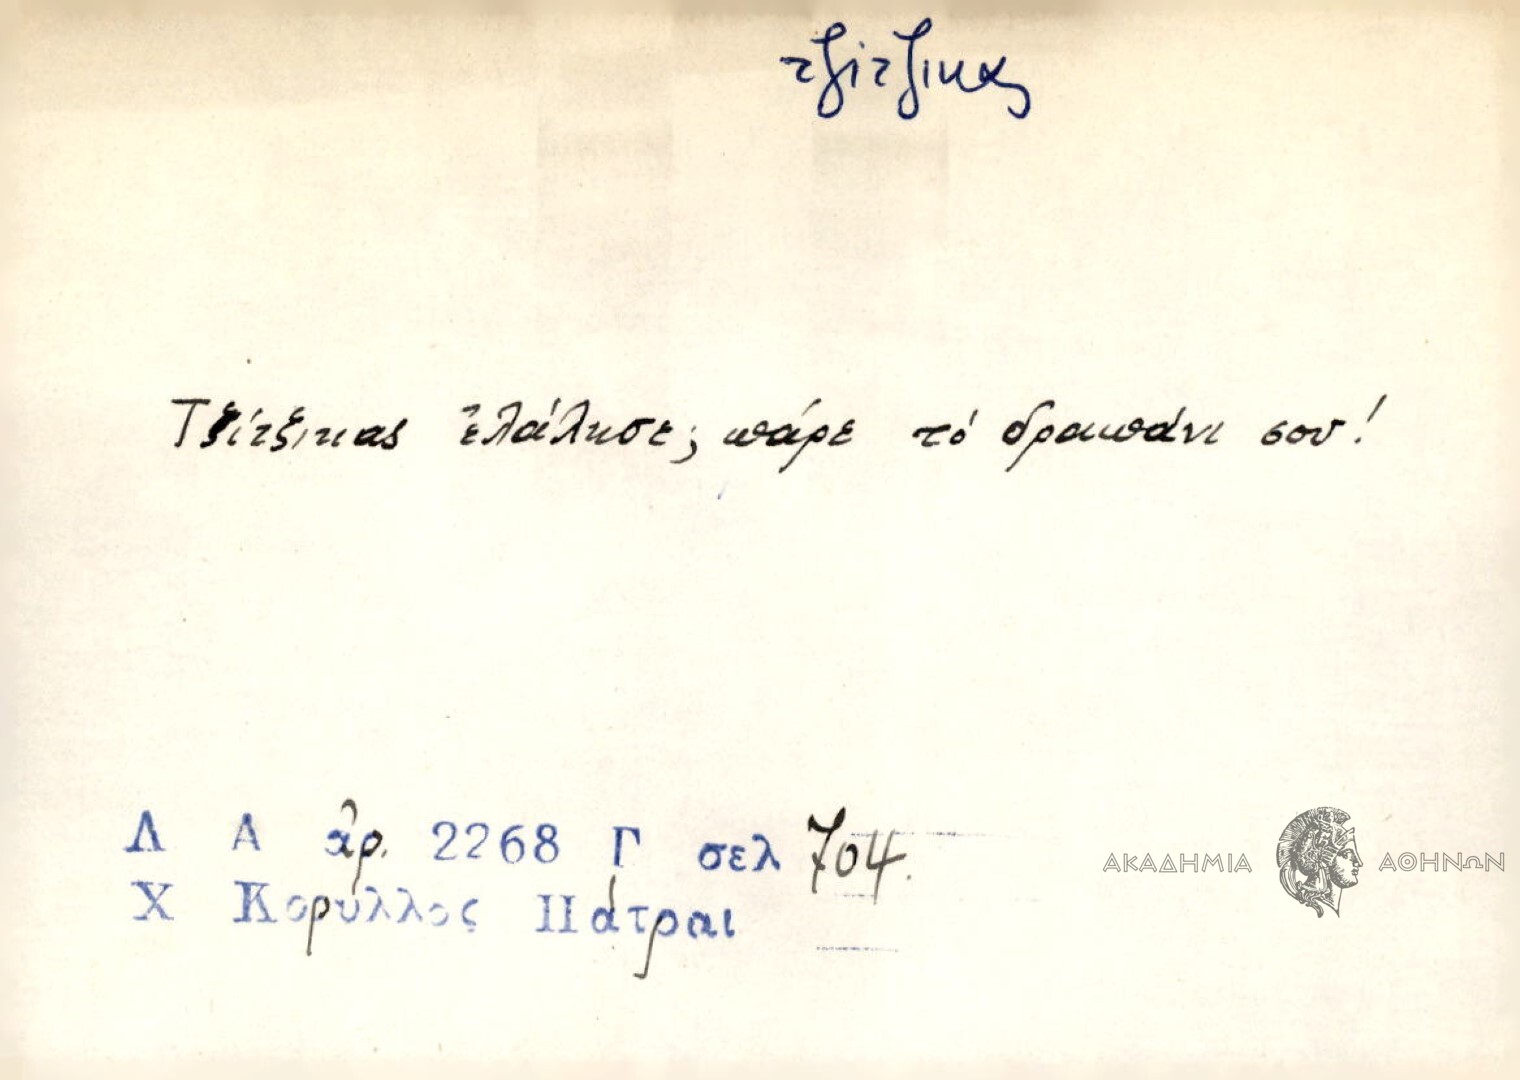 τζίτζικας
Τζίτζικας ἐλάλησε, πάρε τό δραπάνι σου!
Λ Α ἀρ. 2268 Γ σελ 704.
Χ Κορύλλος Πάτραι
ΑΚΑΔΗΜΙΑ ΑΘΗΝΩΝ